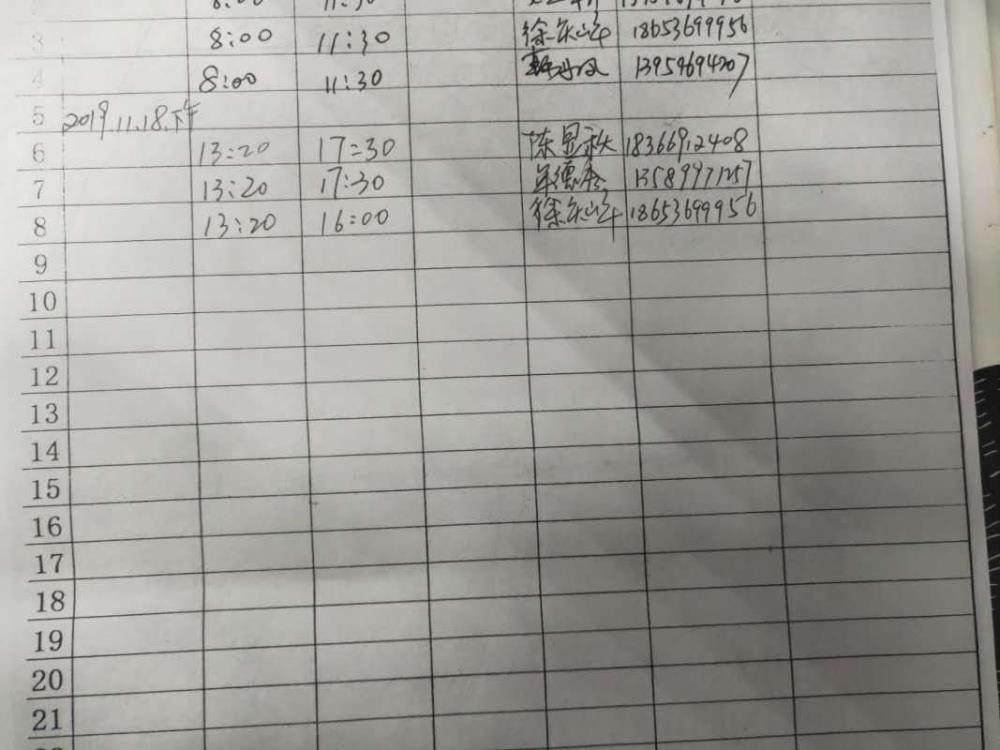 8:00 11:30
3 8:00 11:30 徐 18653699956
4 8:00 11:30 13959694207
5 2019.11.18.下午
6 13:20 17:30 陈显秋 18366912408
7 13:20 17:30 德 13589971257
8 13:20 16:00 徐 18653699956
9
10
11
12
13
14
15
16
17
18
19
20
21